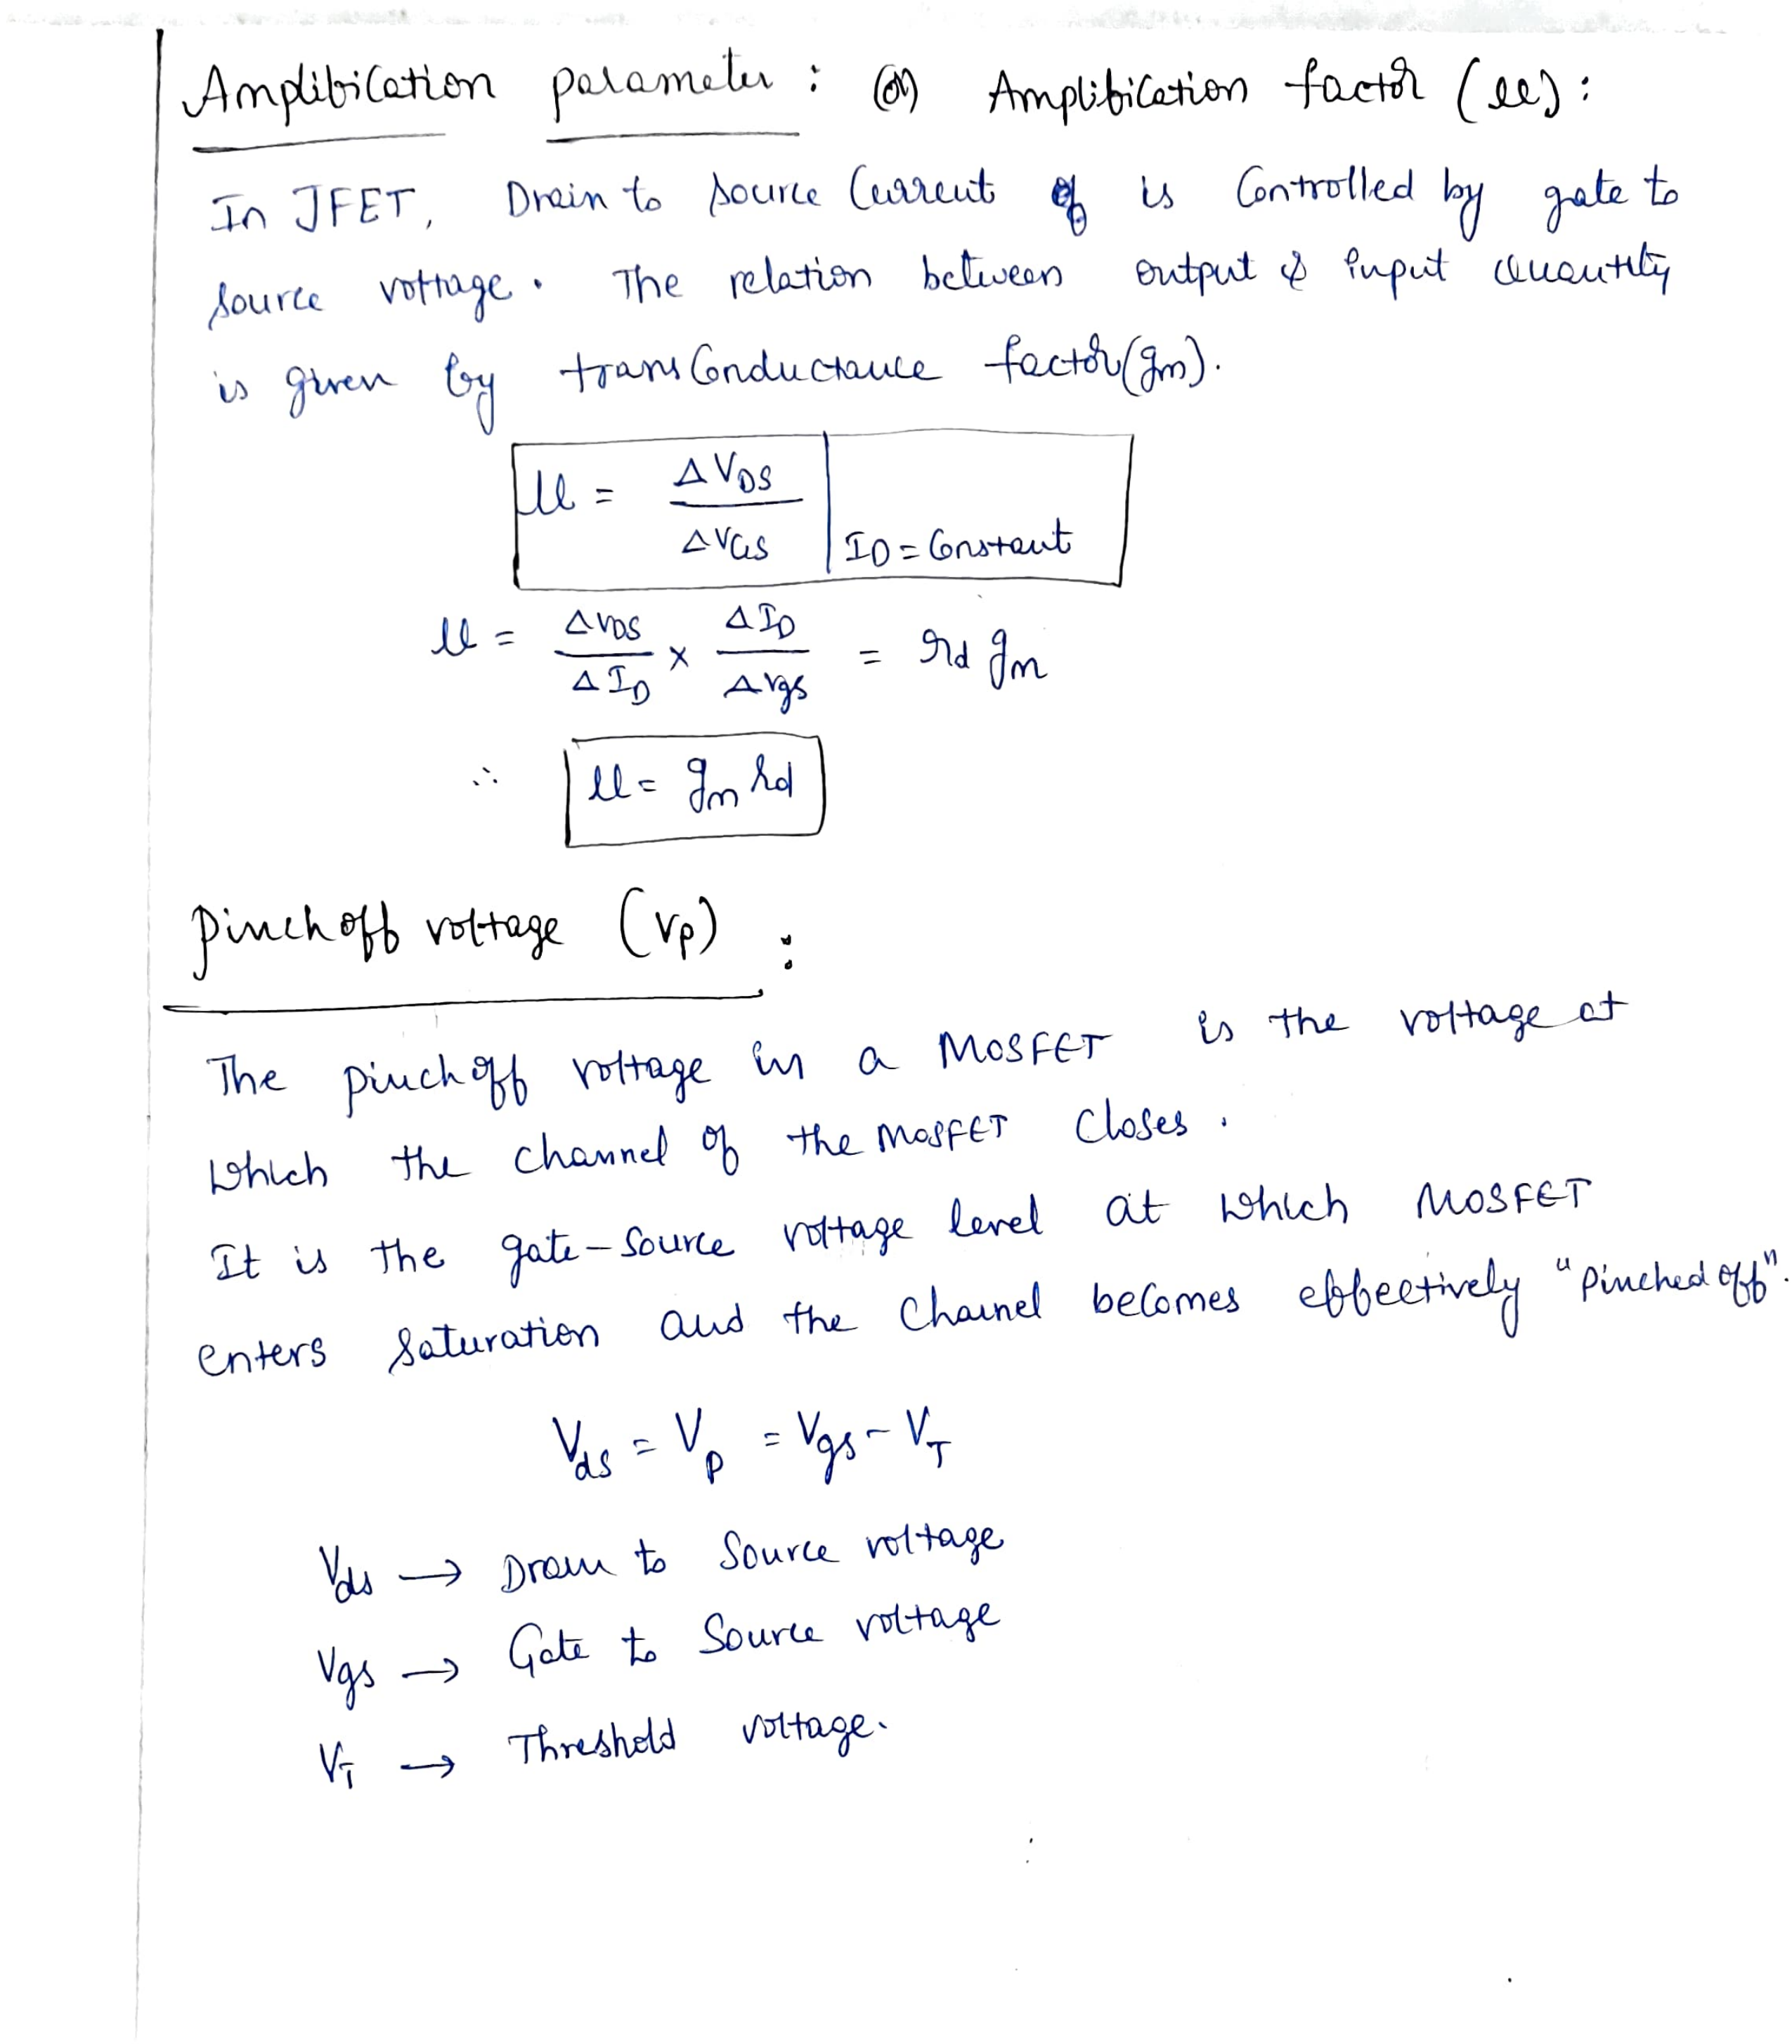 Amplification parameter : (or) Amplification factor (μ) :
In JFET, Drain to source Current is Controlled by gate to
source voltage. The relation between output & input quantity
is given by transconductance factor (gm).
μ = ΔVDS / ΔVGS | ID = Constant
μ = ΔVDS / ΔID × ΔID / ΔVgs = rd gm
∴ μ = gm rd
pinchoff voltage (Vp) :
The pinchoff voltage in a MOSFET is the voltage at
which the channel of the MOSFET closes.
It is the gate-source voltage level at which MOSFET
enters saturation and the channel becomes effectively "pinched off".
Vds = Vp = Vgs - VT
Vds → Drain to Source voltage
Vgs → Gate to Source voltage
VT → Threshold voltage.